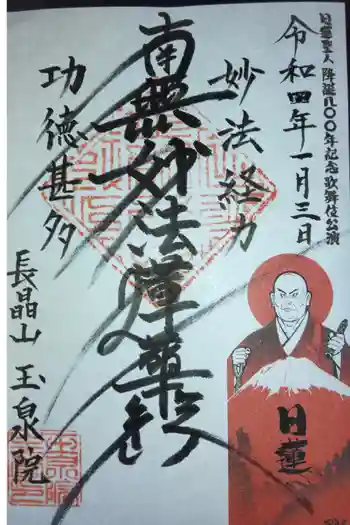 日蓮聖人 降誕八〇〇年記念歌舞伎公演
令和四年一月三日
妙法経力
南無妙法蓮華経
功徳甚多
長晶山 玉泉院
日蓮